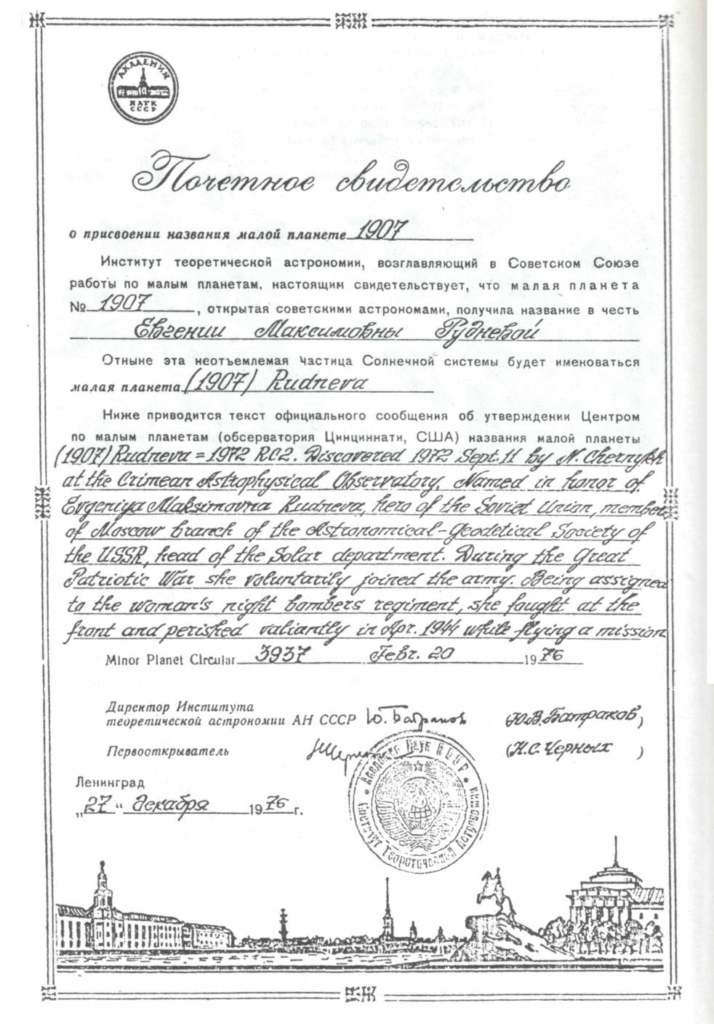 АКАДЕМИЯ
НАУК
СССР
Почетное свидетельство
о присвоении названия малой планете 1907
Институт теоретической астрономии, возглавляющий в Советском Союзе
работы по малым планетам, настоящим свидетельствует, что малая планета
№ 1907, открытая советскими астрономами, получила название в честь
Евгении Максимовны Рудневой
Отныне эта неотъемлемая Частица Солнечной системы будет именоваться
малая планета (1907) Rudneva
Ниже приводится текст официального сообщения об утверждении Центром
по малым планетам (обсерватория Цинциннати, США) названия малой планеты
(1907) Rudneva = 1972 RC2. Discovered 1972 Sept. 11 by N. Chernykh
at the Crimean Astrophysical Observatory. Named in honor of
Evgeniya Maksimovna Rudneva, hero of the Soviet Union, member
of Moscow branch of the Astronomical-Geodetical Society of
the USSR, head of the Solar department. During the Great
Patriotic War she voluntarily joined the army. Being assigned
to the woman's night bombers regiment, she fought at the
front and perished valiantly in Apr. 1944 while flying a mission
Minor Planet Circular 3937 Febr. 20 1976
Директор Института
теоретической астрономии АН СССР Ю. Батраков (Ю.В. Батраков)
Первооткрыватель (Н.С. Черных)
Академия Наук СССР
Институт Теоретической Астрономии
Ленинград
„27" декабря 1976 г.